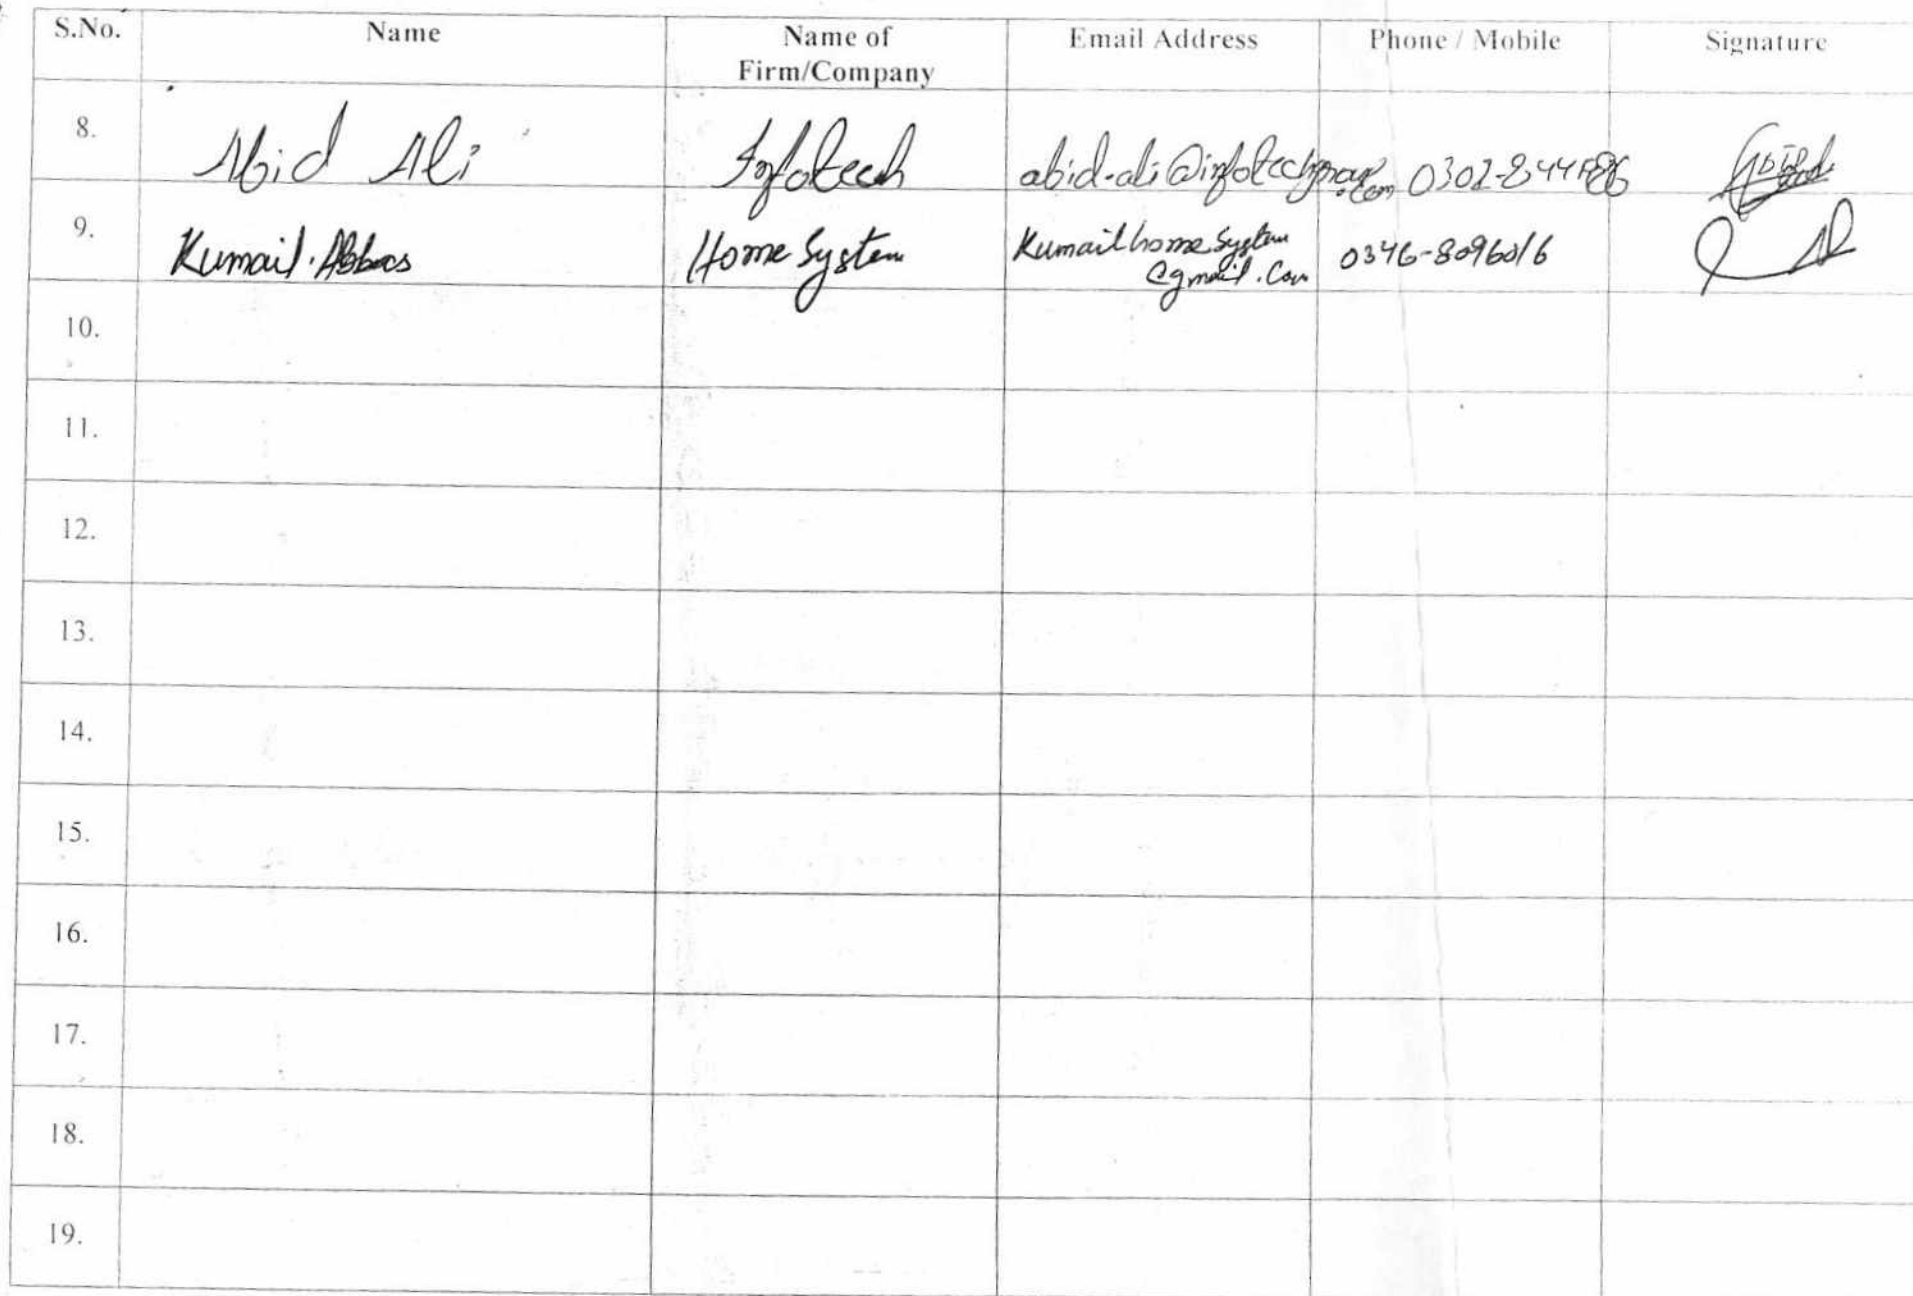 S.No. Name Name of Firm/Company Email Address Phone / Mobile Signature
8. Abid Ali Infotech
9. Kumail Abbas Home System Kumailhomesystem@gmail.com 0346-8096016
10.
11.
12.
13.
14.
15.
16.
17.
18.
19.